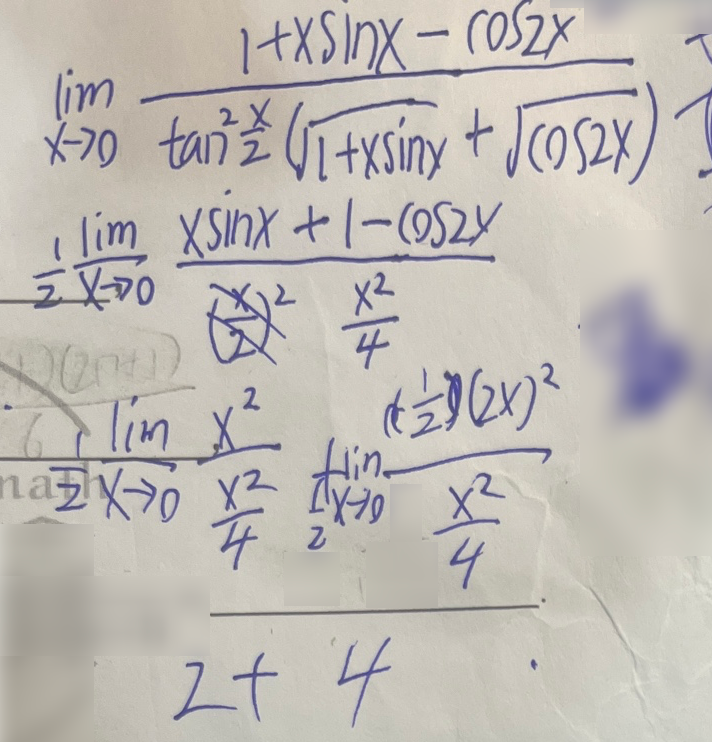 lim x→0 (1+xsinx−cos2x) / (tan² x/2 (√(1+xsinx) + √(cos2x)))
1/2 lim x→0 (xsinx + 1−cos2x) / (x²/4)
1/2 lim x→0 x² / (x²/4) 1/2 lim x→0 (1/2 (2x)²) / (x²/4)
2 + 4